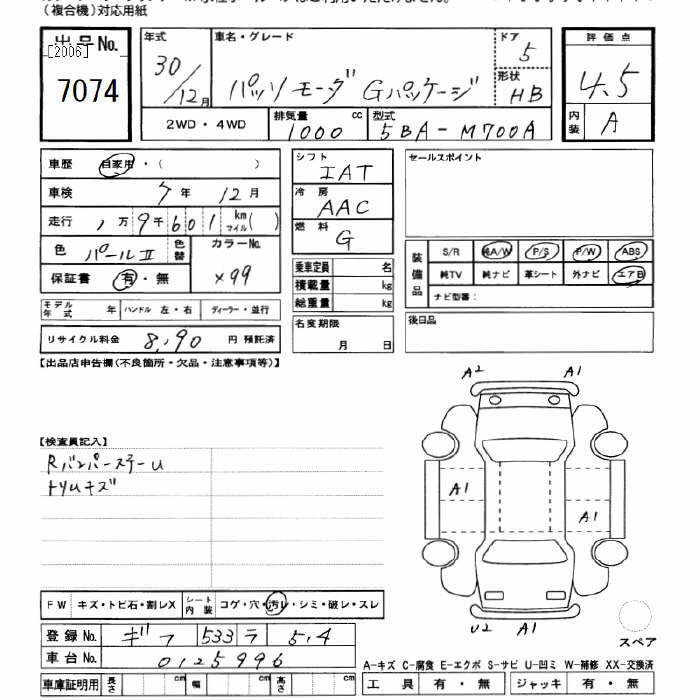 (複合機)対応用紙
出品No.
[2006]
7074
年式
30/12月
車名・グレード
パッソ モーダ Gパッケージ
ドア
5
形状
HB
評価点
4.5
内装
A
2WD・4WD
排気量 cc
1000
型式
5BA-M700A
車歴 自家用・( )
車検 7年 12月
走行 1万9千601 km マイル( )
色 パールⅡ 色替
カラーNo.
X99
保証書 有・無
モデル年式 年 ハンドル 左・右 ディーラー・並行
リサイクル料金 8,190 円 預託済
シフト
IAT
冷房
AAC
燃料
G
乗車定員 名
積載量 kg
総重量 kg
名変期限
月 日
セールスポイント
装備品
S/R 純A/W P/S P/W ABS
純TV 純ナビ 革シート 外ナビ エアB
ナビ型番:
後日品
【出品店申告欄(不良箇所・欠品・注意事項等)】
【検査員記入】
Rバンパーステーu
トリムキズ
A2 A1
A1
A1
U2 A1
スペア
FW キズ・トビ石・割レX シート内装 コゲ・穴・汚レ・シミ・破レ・スレ
登録No. ギフ 533 ラ 5,4
車台No. 0125996
A-キズ C-腐食 E-エクボ S-サビ U-凹ミ W-補修 XX-交換済
車庫証明用 長さ cm 幅 cm 高さ cm
工具 有・無 ジャッキ 有・無